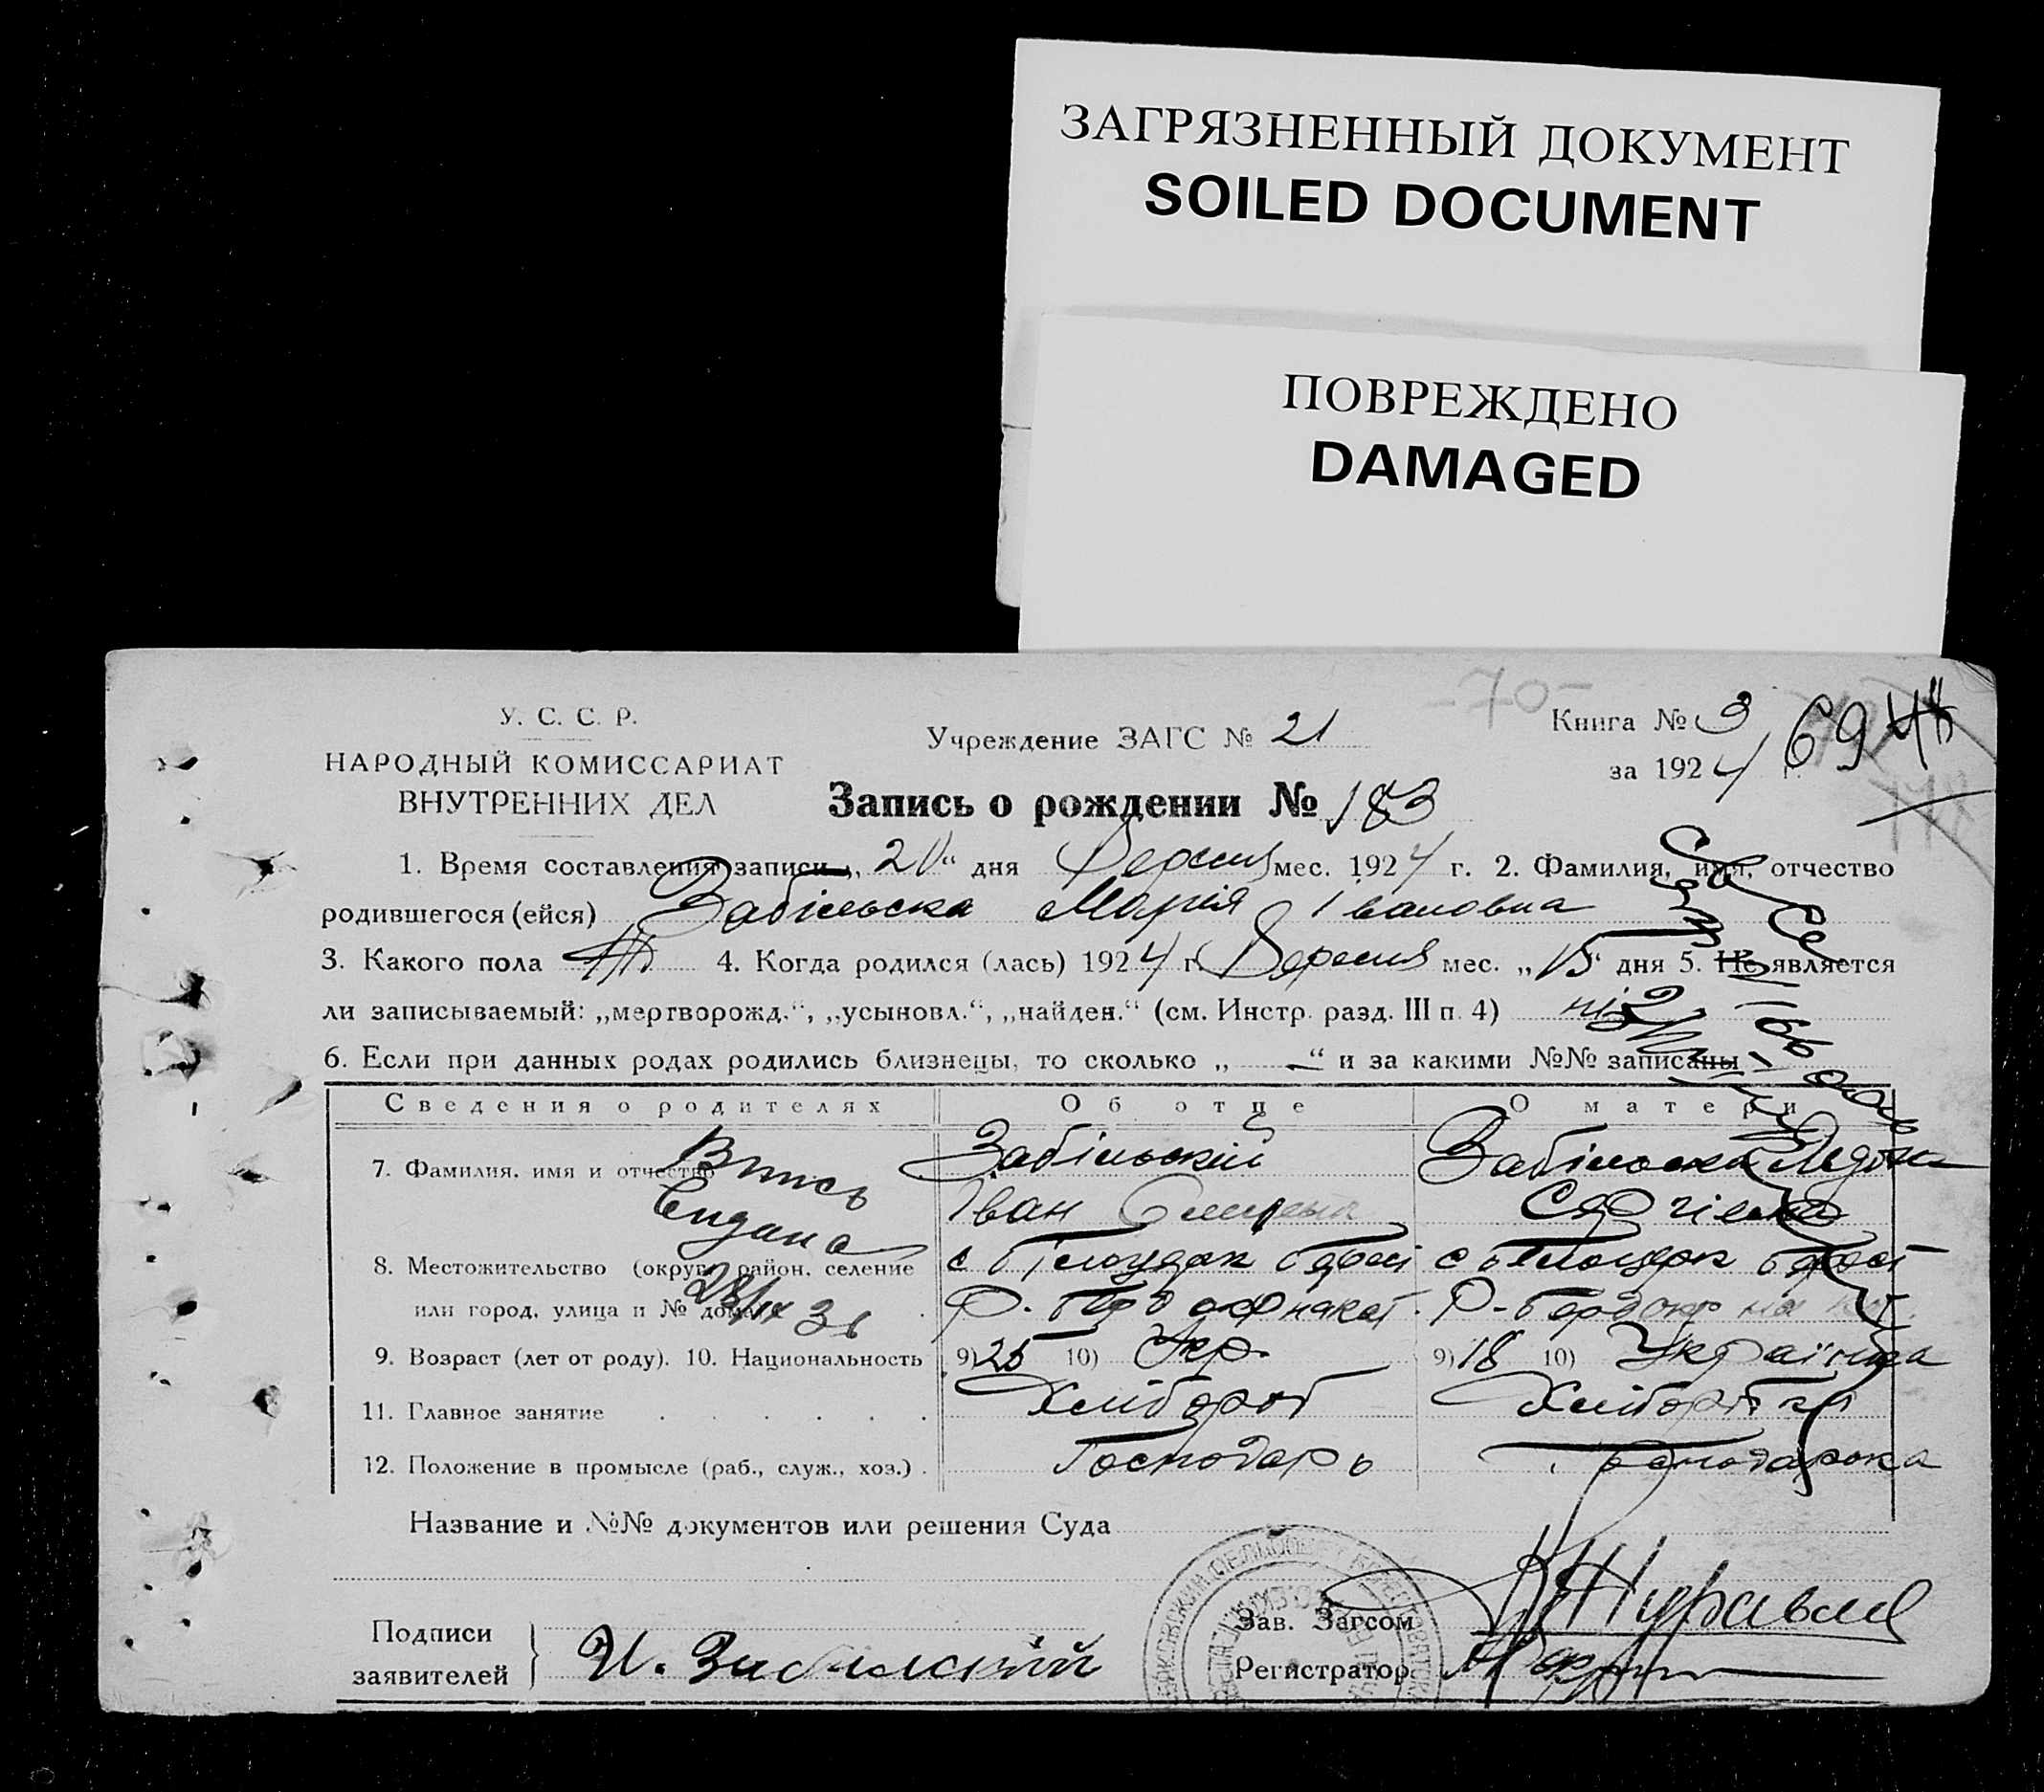 ЗАГРЯЗНЕННЫЙ ДОКУМЕНТ
SOILED DOCUMENT
ПОВРЕЖДЕНО
DAMAGED
-70-
У. С. С. Р.
НАРОДНЫЙ КОМИССАРИАТ
ВНУТРЕННИХ ДЕЛ
Учреждение ЗАГС № 21
Книга № 3
за 1924 г. 69
Запись о рождении № 183
1. Время составления записи „20“ дня Вересня мес. 1924 г. 2. Фамилия, имя, отчество
родившегося (ейся) Забільська Марія Івановна
3. Какого пола 4. Когда родился (лась) 1924 г. Вересня мес. „15“ дня 5. Не является
ли записываемый: „мертворожд.“, „усыновл.“, „найден.“ (см. Инстр. разд. III п. 4) ні
6. Если при данных родах родились близнецы, то сколько „—“ и за какими №№ записаны
Сведения о родителях Об отце О матери
7. Фамилия, имя и отчество Забільский Забільська
Іван
Впись
Видана
8. Местожительство (округ, район, селение
или город, улица и № дома)
9. Возраст (лет от роду). 10. Национальность 9) 25 10) Укр. 9) 18 10) Українка
11. Главное занятие Хлібороб Хліборобка
12. Положение в промысле (раб., служ., хоз.) Господарь Господарька
Название и №№ документов или решения Суда
Подписи
заявителей
И. Забилский
Зав. Загсом
Регистратор